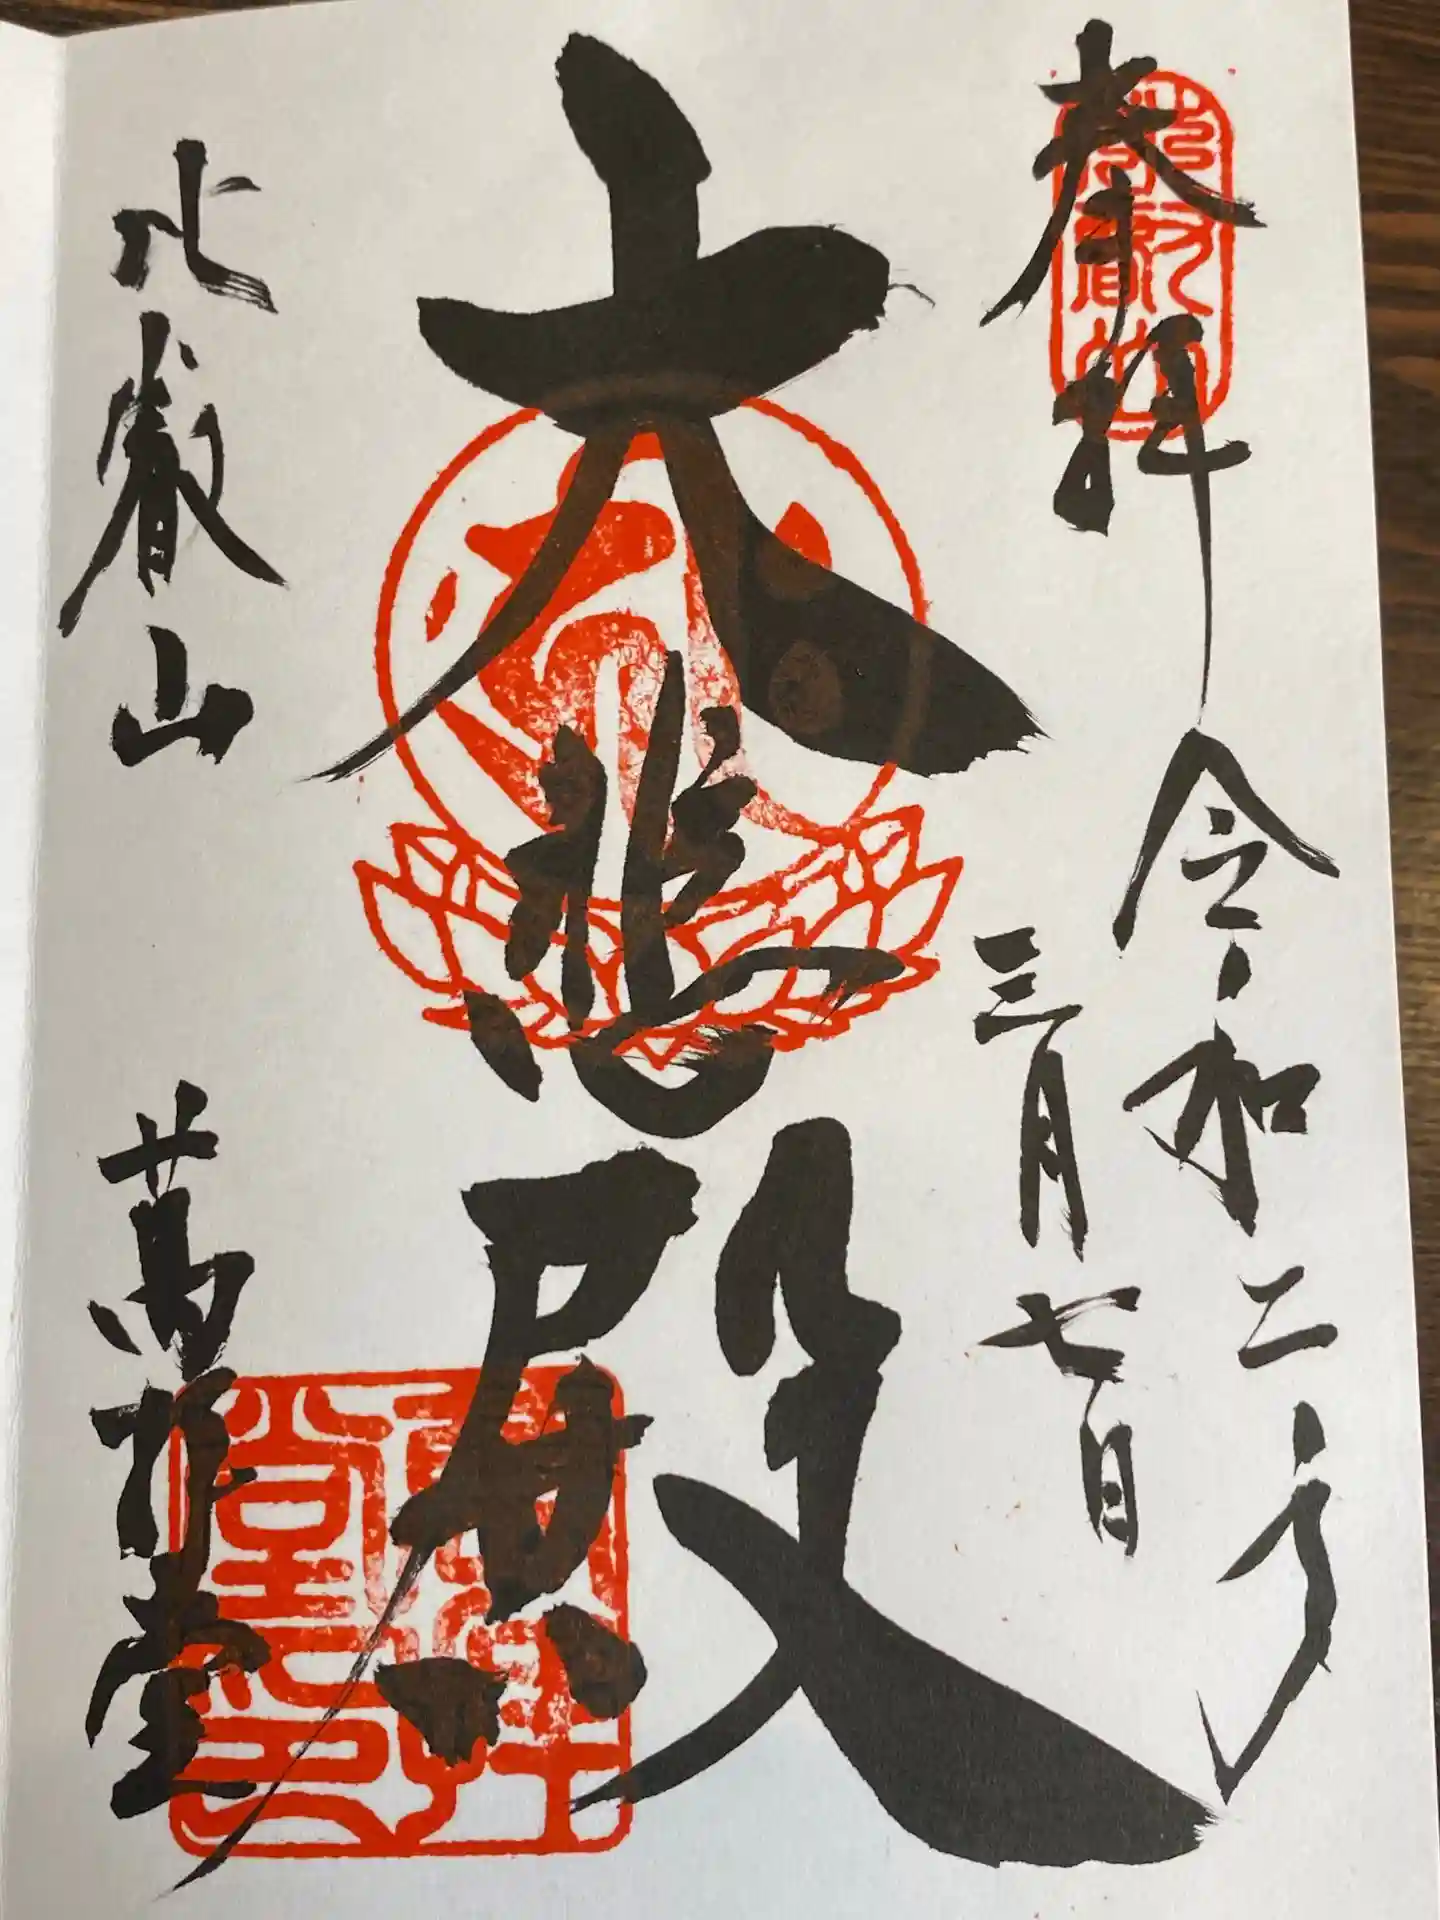 奉拝
令和二年
三月七日
大悲殿
比叡山
萬拝堂